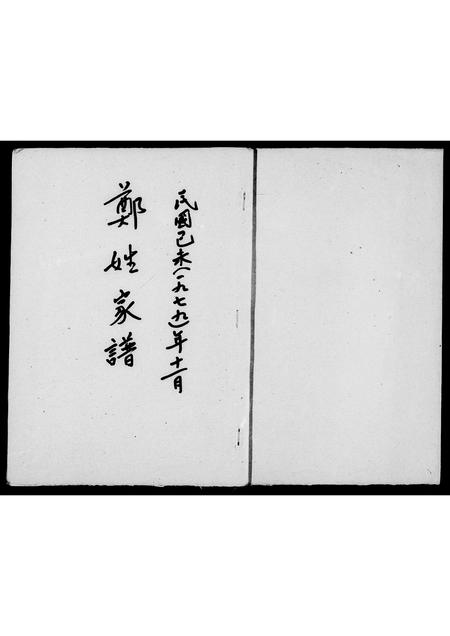 民國己未(一九七九)年十一月
鄭姓家譜